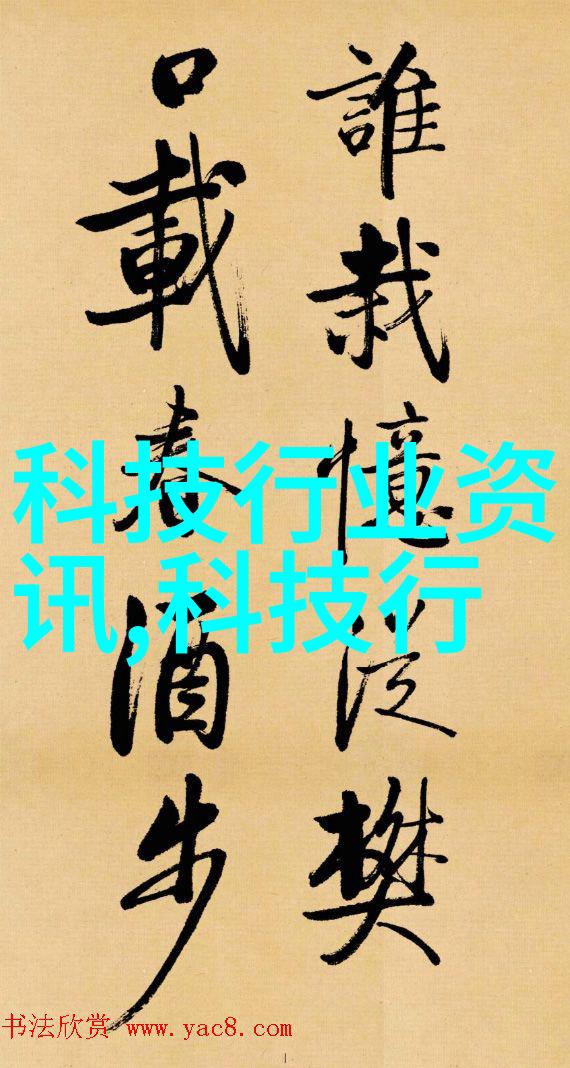 誰栽憶泛樊
口載春酒步
科技行业资
讯,科技行
书法欣赏 www.yac8.com